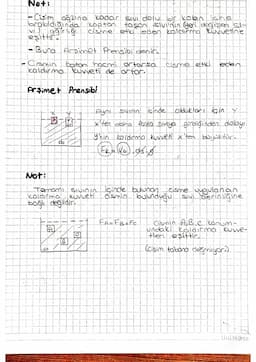 Not:
- Cisim ağzına kadar sıvı dolu bir kaba
bırakıldığında kaptan taşan sıvının
ağırlığı cisme etki eden kaldırma kuvvetine
eşittir.
- Buna Arşimet Prensibi denir.
- Cismin batan hacmi artarsa cisme etki eden
kaldırma kuvveti de artar.
Arşimet Prensibi
Aynı sıvının içinde oldukları için Y
x'ten daha fazla
Y'nin kaldırma kuvveti x'ten büyüktür.
x
Y
Not:
Tamamı sıvının içinde bulunan cisme uygulanan
kaldırma kuvveti cismin bulunduğu sıvı derinliğine
bağlı değildir.
FA=FB=FC
cismin A,B,C konum-
undaki kaldırma kuvve-
tleri eşittir.
(Cisim tabana değmiyor)
A
B
C